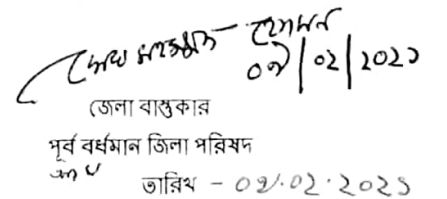 ০৭/০২/২০২১
জেলা বাস্তুকার
পূর্ব বর্ধমান জিলা পরিষদ
তারিখ - ০৭.০২.২০২১